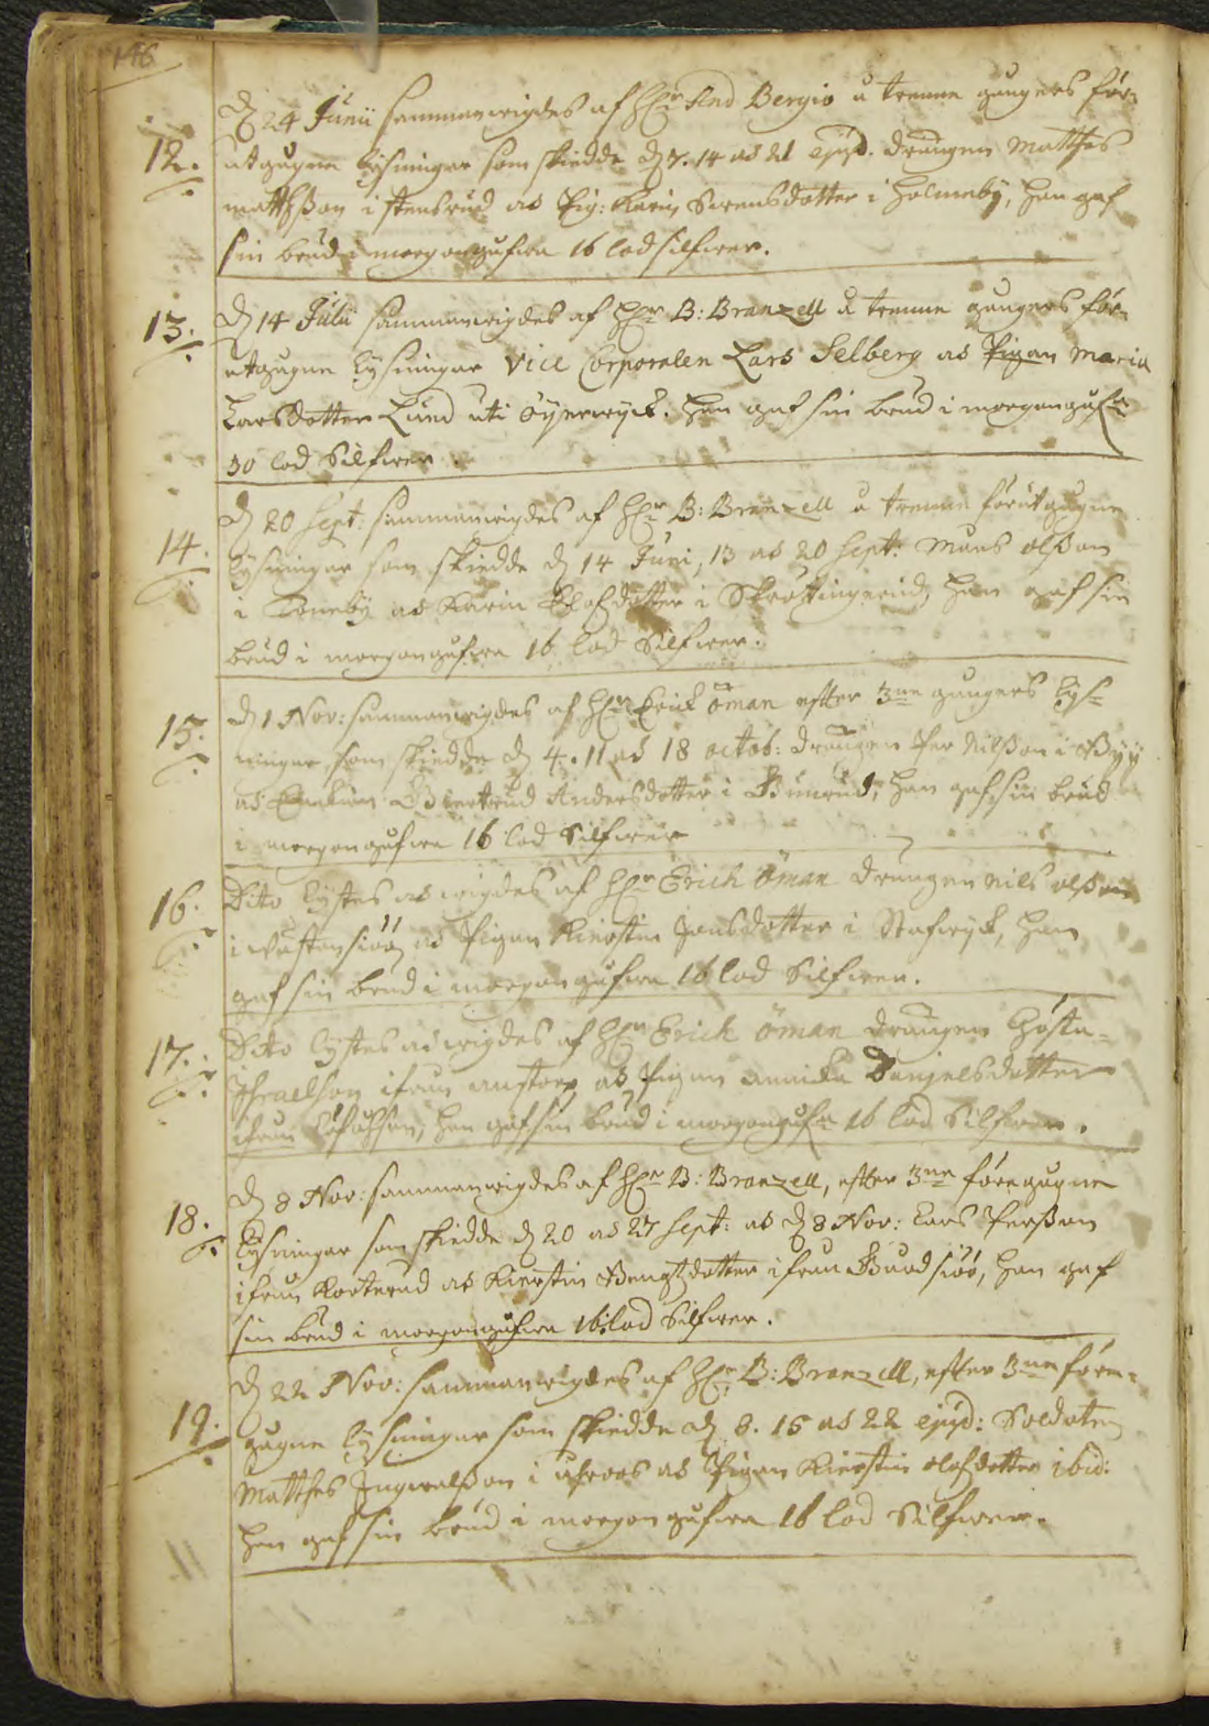 146
12. D 24 Junii sammanwigdes af H:r And Bergio å trenne gångers för-
utgågne lysningar som skiedde d 7. 14 och 21 ejusd. drängen Matthes
Matthsson i Stensrud och Pig: Karin Svensdotter i Holmeby, han gaf
sin brud i morgongåfwa 16 lod silfwer.
13. D 14 Julii sammanwigdes af H:r B: Branzell å trenne gångers för-
utgågne lysningar Vice Corporalen Lars Selberg och Pigan Maria
Larsdotter Lund uti Öijerwijck. han gaf sin brud i morgongåfwa
30 lod Silfwer.
14. D 20 Sept: sammanwigdes af H:r B: Branzell å trenne förutgågne
lysningar som skiedde d 14 Juni, 13 och 20 Sept: Måns Olsson
i Toneby och Karin Olofsdotter i han gaf sin
brud i morgongåfwa 16 lod Silfwer.
15. D 1 Nov: sammanwigdes af H:r Erick Öman efter 3ne gångers lys-
ningar, som skiedde d 4. 11 och 18 octob: drängen Per Nilsson i Byy
och Enkian Andersdotter i han gaf sin brud
i morgongåfwa 16 lod Silfwer
16. Dito lystes och wigdes af H:r Erich Öman drängen Nils Olsson
i och Pigan Kierstin Jonsdotter i Stafwijck, han
gaf sin brud i morgongåfwa 16 lod Silfwer.
17. Dito lystes och wigdes af H:r Erich Öman drängen Gösta
Israelson ifrån och Pigan Annicka Danjelsdotter
ifrån han gaf sin brud i morgongåfwa 16 lod Silfwer.
18. D 8 Nov: sammanwigdes af H:r B: Branzell, efter 3ne föregågne
lysningar som skiedde d 20 och 27 Sept: och d 8 Nov: Lars Persson
ifrån Korterud och Kierstin Bengtzdotter ifrån han gaf
sin brud i morgongåfwa 16 lod Silfwer.
19. D 22 Nov: sammanwigdes af H:r B: Branzell, efter 3ne före-
gågne lysningar som skiedde d 8. 15 och 22 ejusd: Soldaten
Matthes Ingwalsson i och Pigan Kierstin Olofsdotter ibid:
han gaf sin brud i morgongåfwa 16 lod Silfwer.